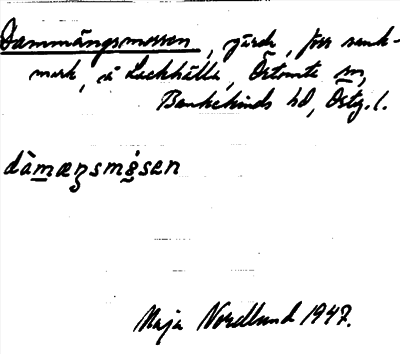 Dammängsmossen, gärde, förr sank-
mark, å Lackhälla, Örtomta sn,
Bankekinds hd, Östg. l.
dàmæŋsmósen
Maja Nordlund 1947.